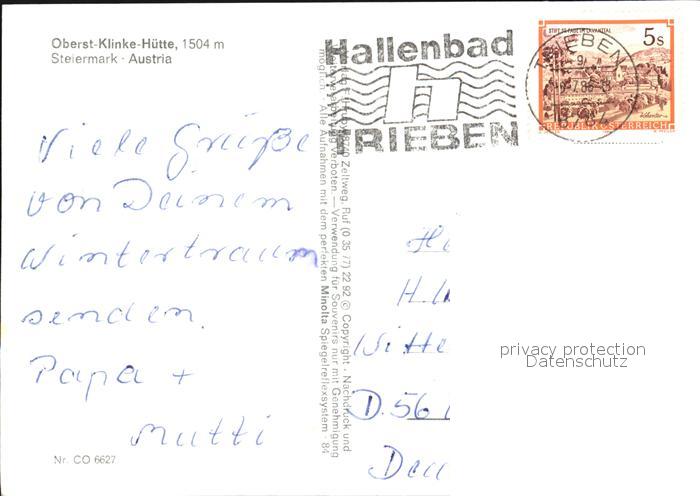 Oberst-Klinke-Hütte, 1504 m
Steiermark · Austria
Viele Grüße
von Deinem
Wintertraum
senden.
Papa +
Mutti
Nr. CO 6627
Zeltweg, Ruf (0 35 77) 22 92 © Copyright · Nachdruck und
verboten. — Verwendung für Souvenirs nur mit Genehmigung
möglich. · Alle Aufnahmen mit dem perfekten Minolta Spiegelreflexsystem · 84
Hallenbad
h
TRIEBEN
TRIEBEN
STIFT ST. PAUL IM LAVANTTAL
5 s
REPUBLIK ÖSTERREICH
Witte
D. 56
Deu
privacy protection
Datenschutz